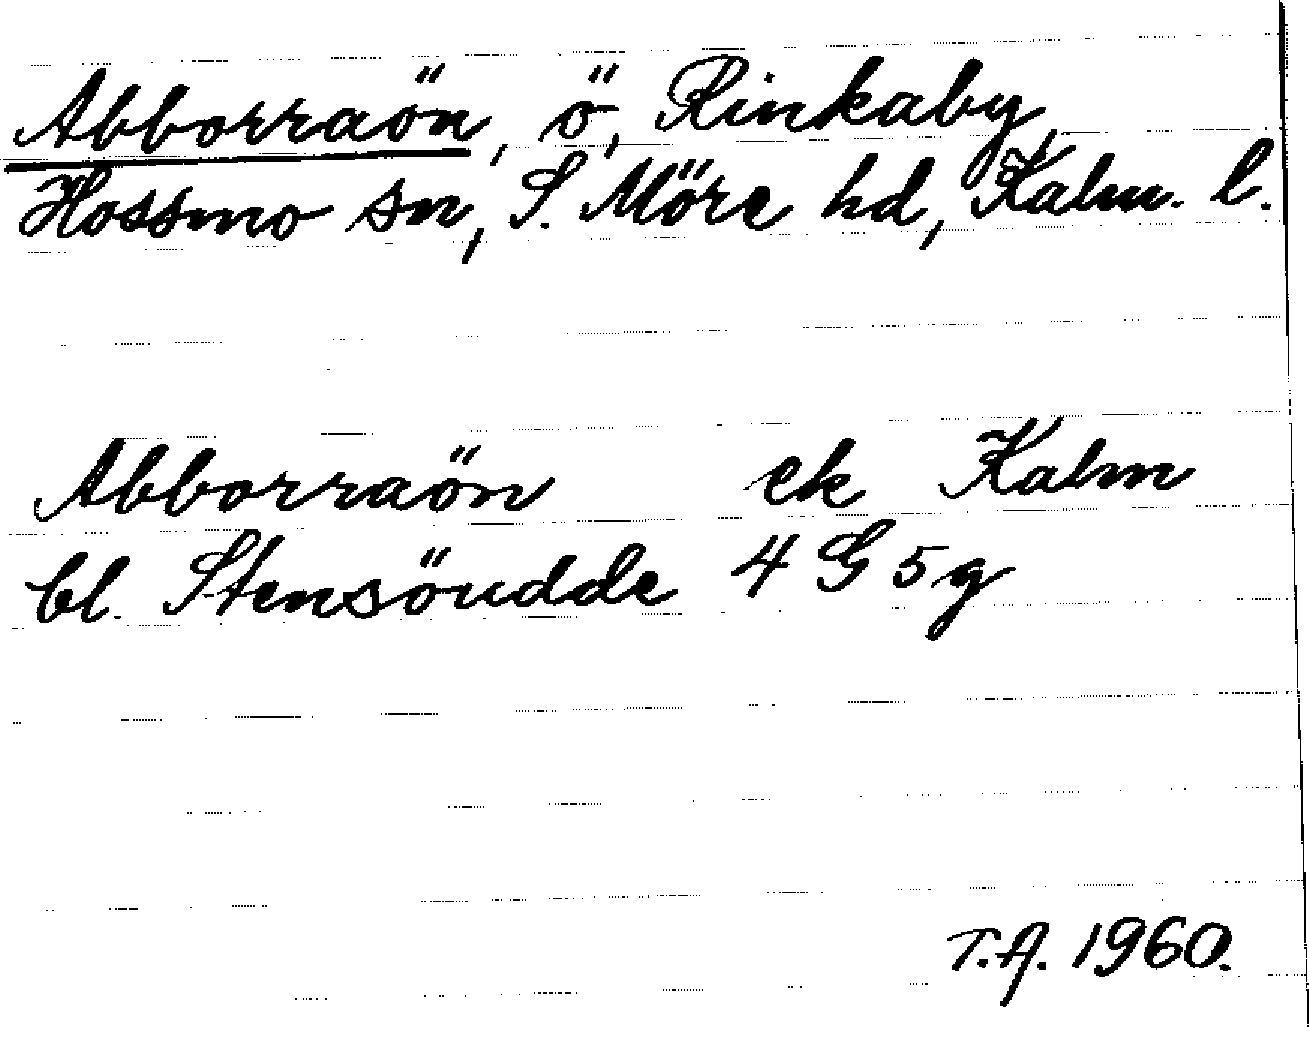 Abborraön, ö, Rinkaby,
Hossmo sn, S. Möre hd, Kalm. l.
Abborraön ek Kalm
bl. Stensöudde 4 G 5 g
T.A. 1960.